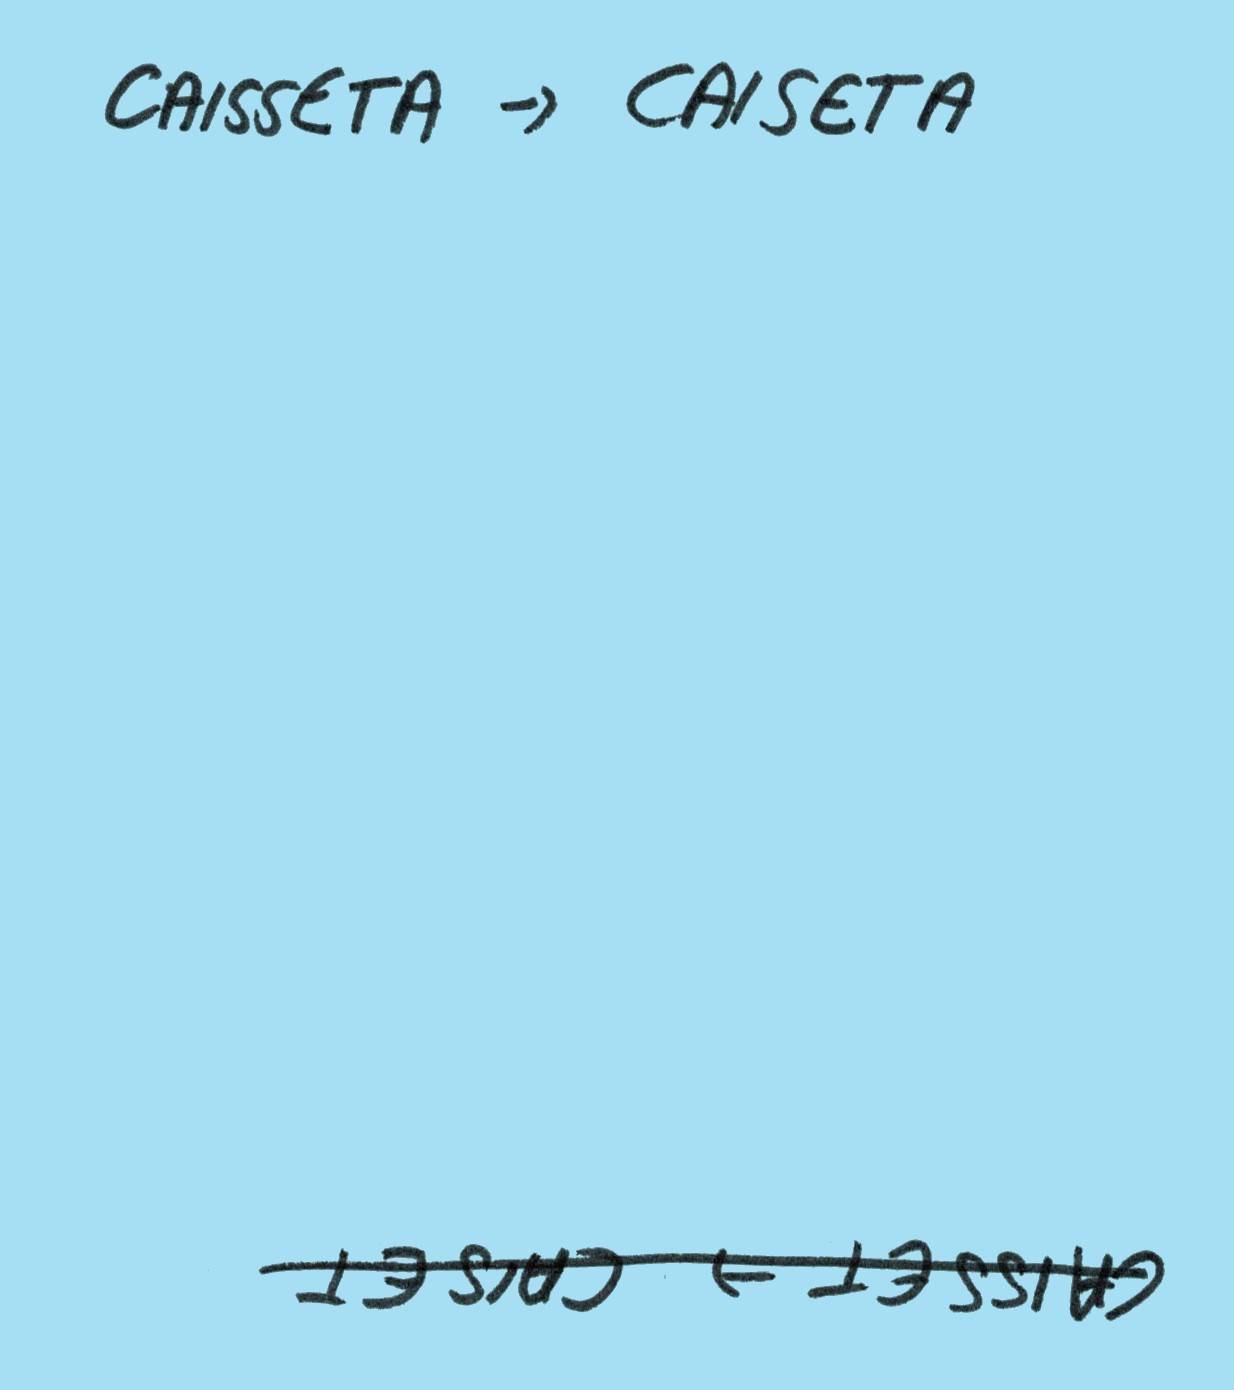 CAISSETA → CAISETA
CAISSET → CAISET